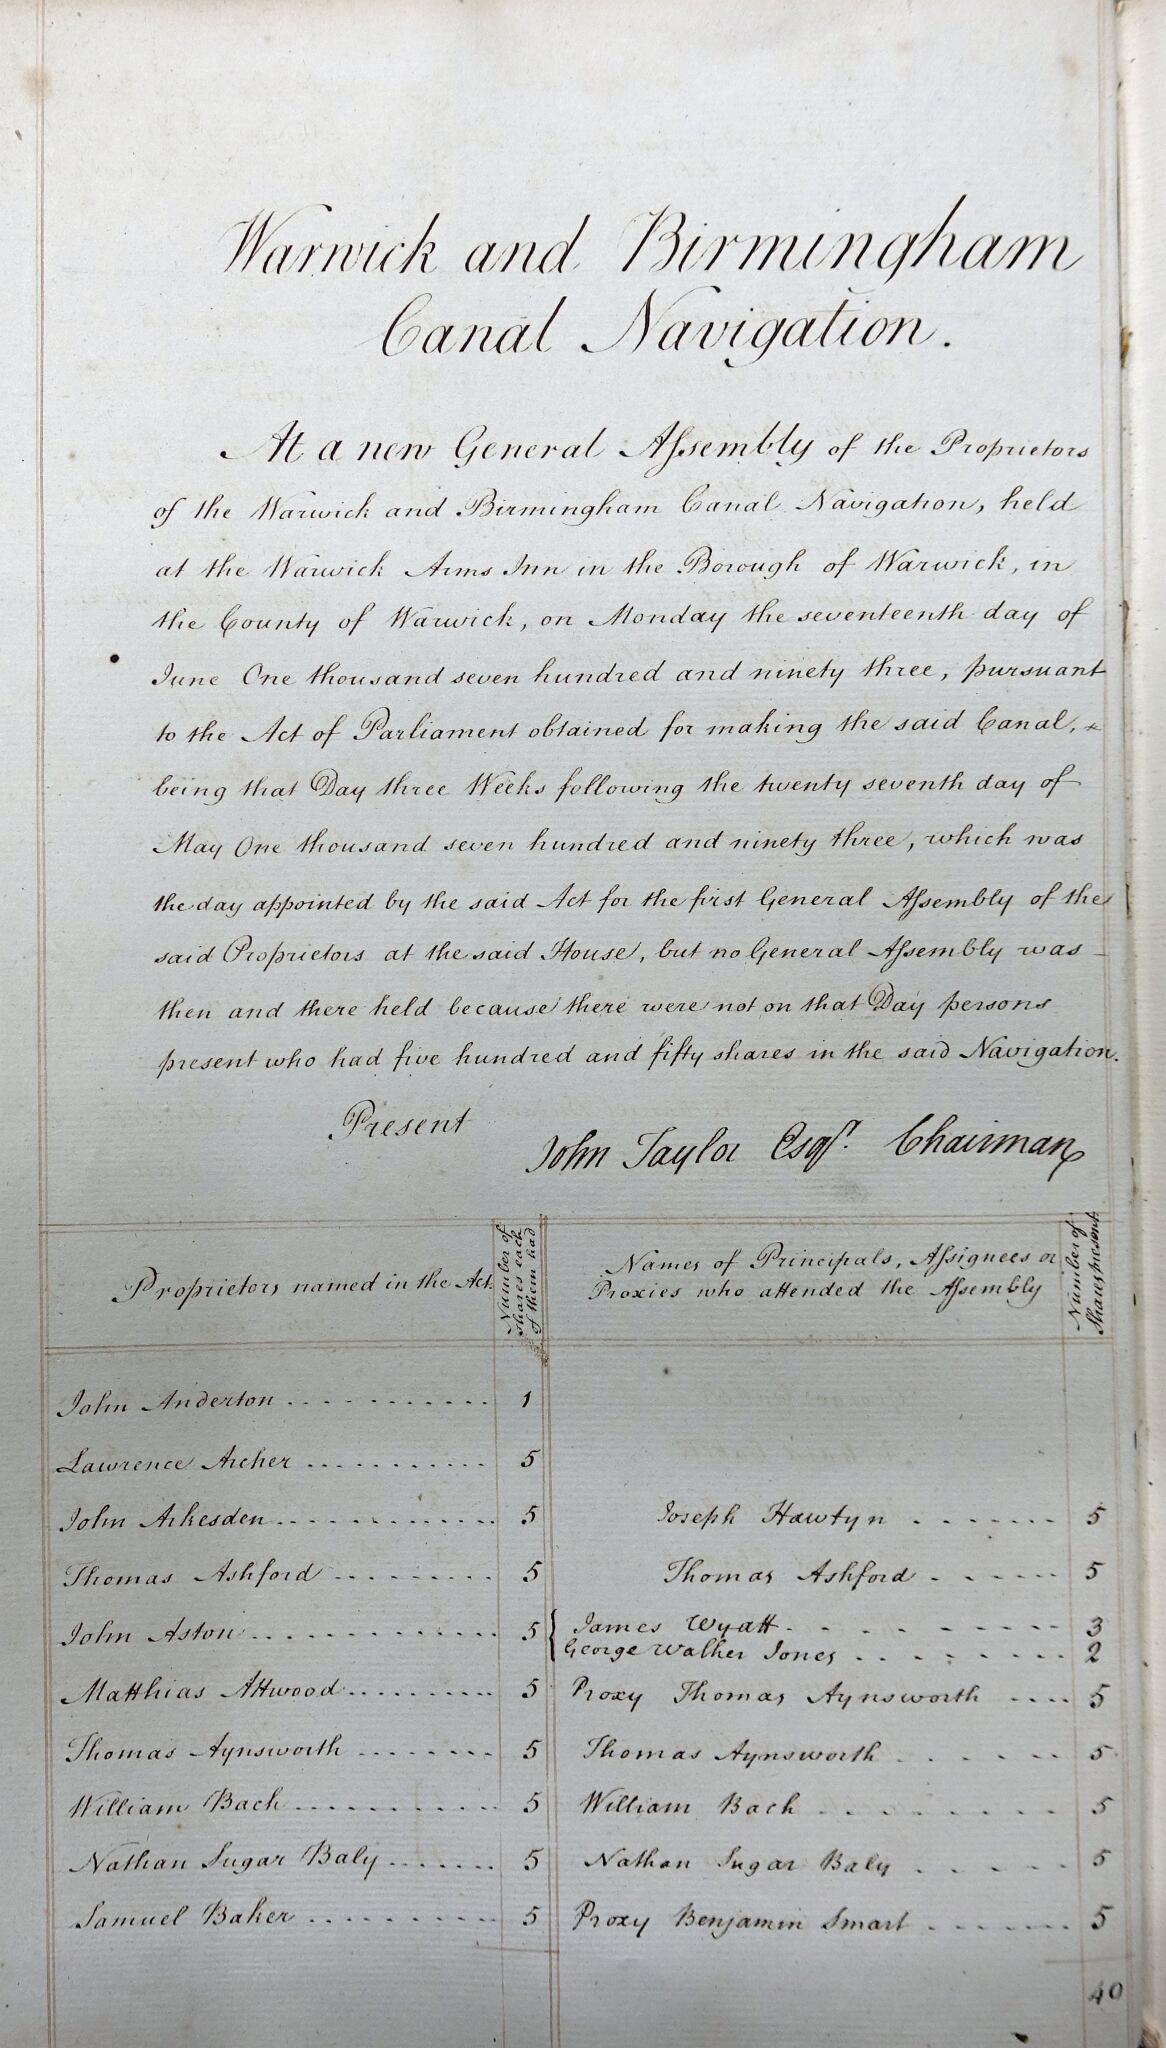 Warwick and Birmingham
Canal Navigation.
At a new General Aſsembly of the Proprietors
of the Warwick and Birmingham Canal Navigation, held
at the Warwick Arms Inn in the Borough of Warwick, in
the County of Warwick, on Monday the seventeenth day of
June One thousand seven hundred and ninety three, pursuant
to the Act of Parliament obtained for making the said Canal,
being that Day three Weeks following the twenty seventh day of
May One thousand seven hundred and ninety three, which was
the day appointed by the said Act for the first General Aſsembly of the
said Proprietors at the said House, but no General Aſsembly was
then and there held because there were not on that Day persons
present who had five hundred and fifty shares in the said Navigation.
Present
John Taylor Esqr. Chairman
Proprietors named in the Act.
Number of
shares each
of them had
Names of Principals, Aſsignees or
Proxies who attended the Aſsembly
Number of
Shares present
John Anderton 1
Lawrence Archer 5
John Arkesden 5 Joseph Hawtyn 5
Thomas Ashford 5 Thomas Ashford 5
John Aston 5 { James Wyatt 3
George Walker Jones 2
Matthias Attwood 5 Proxy Thomas Aynsworth 5
Thomas Aynsworth 5 Thomas Aynsworth 5
William Bach 5 William Bach 5
Nathan Sugar Baly 5 Nathan Sugar Baly 5
Samuel Baker 5 Proxy Benjamin Smart 5
40